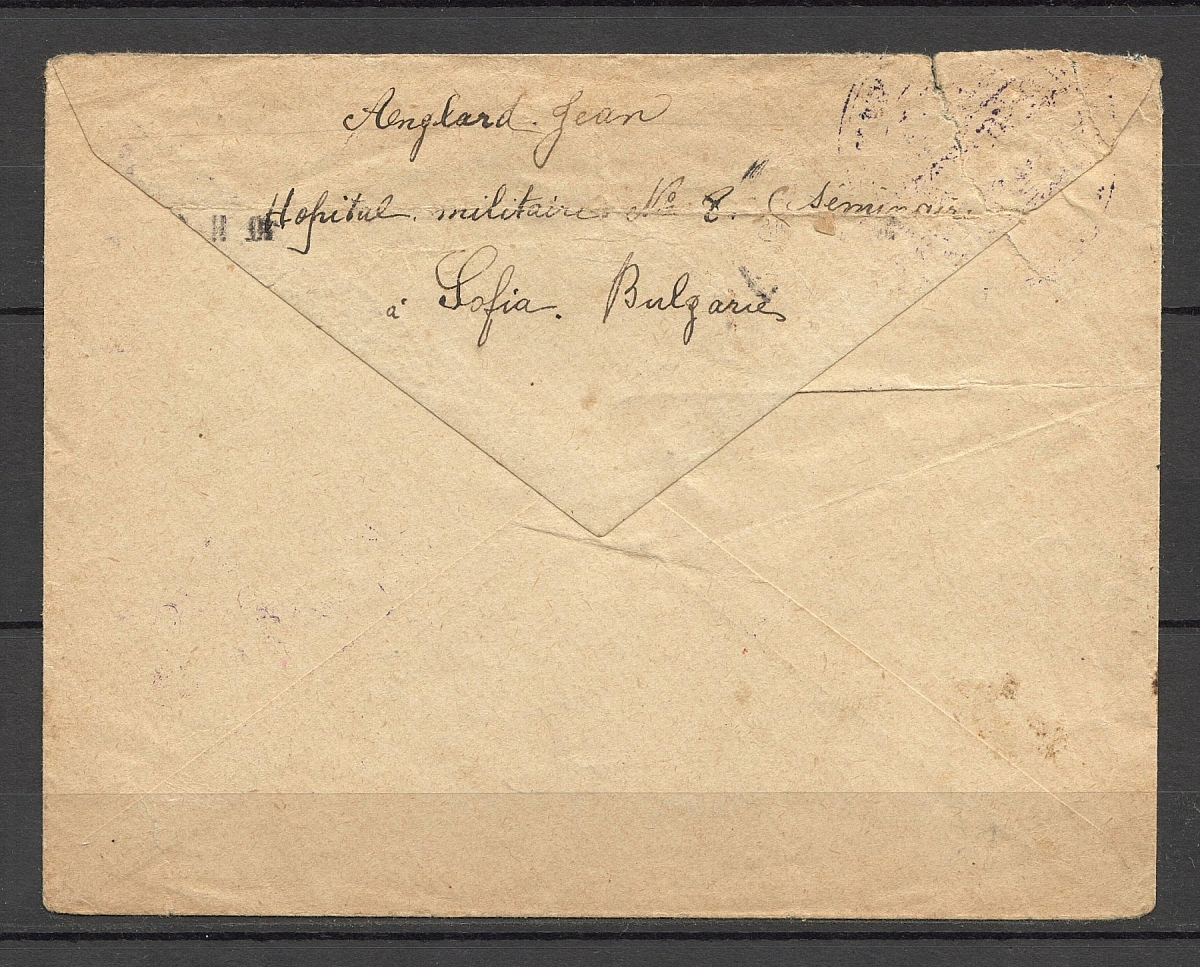 Anglard. Jean
Hopital. militaire. No 8. (Seminair.
à Sofia. Bulgarie